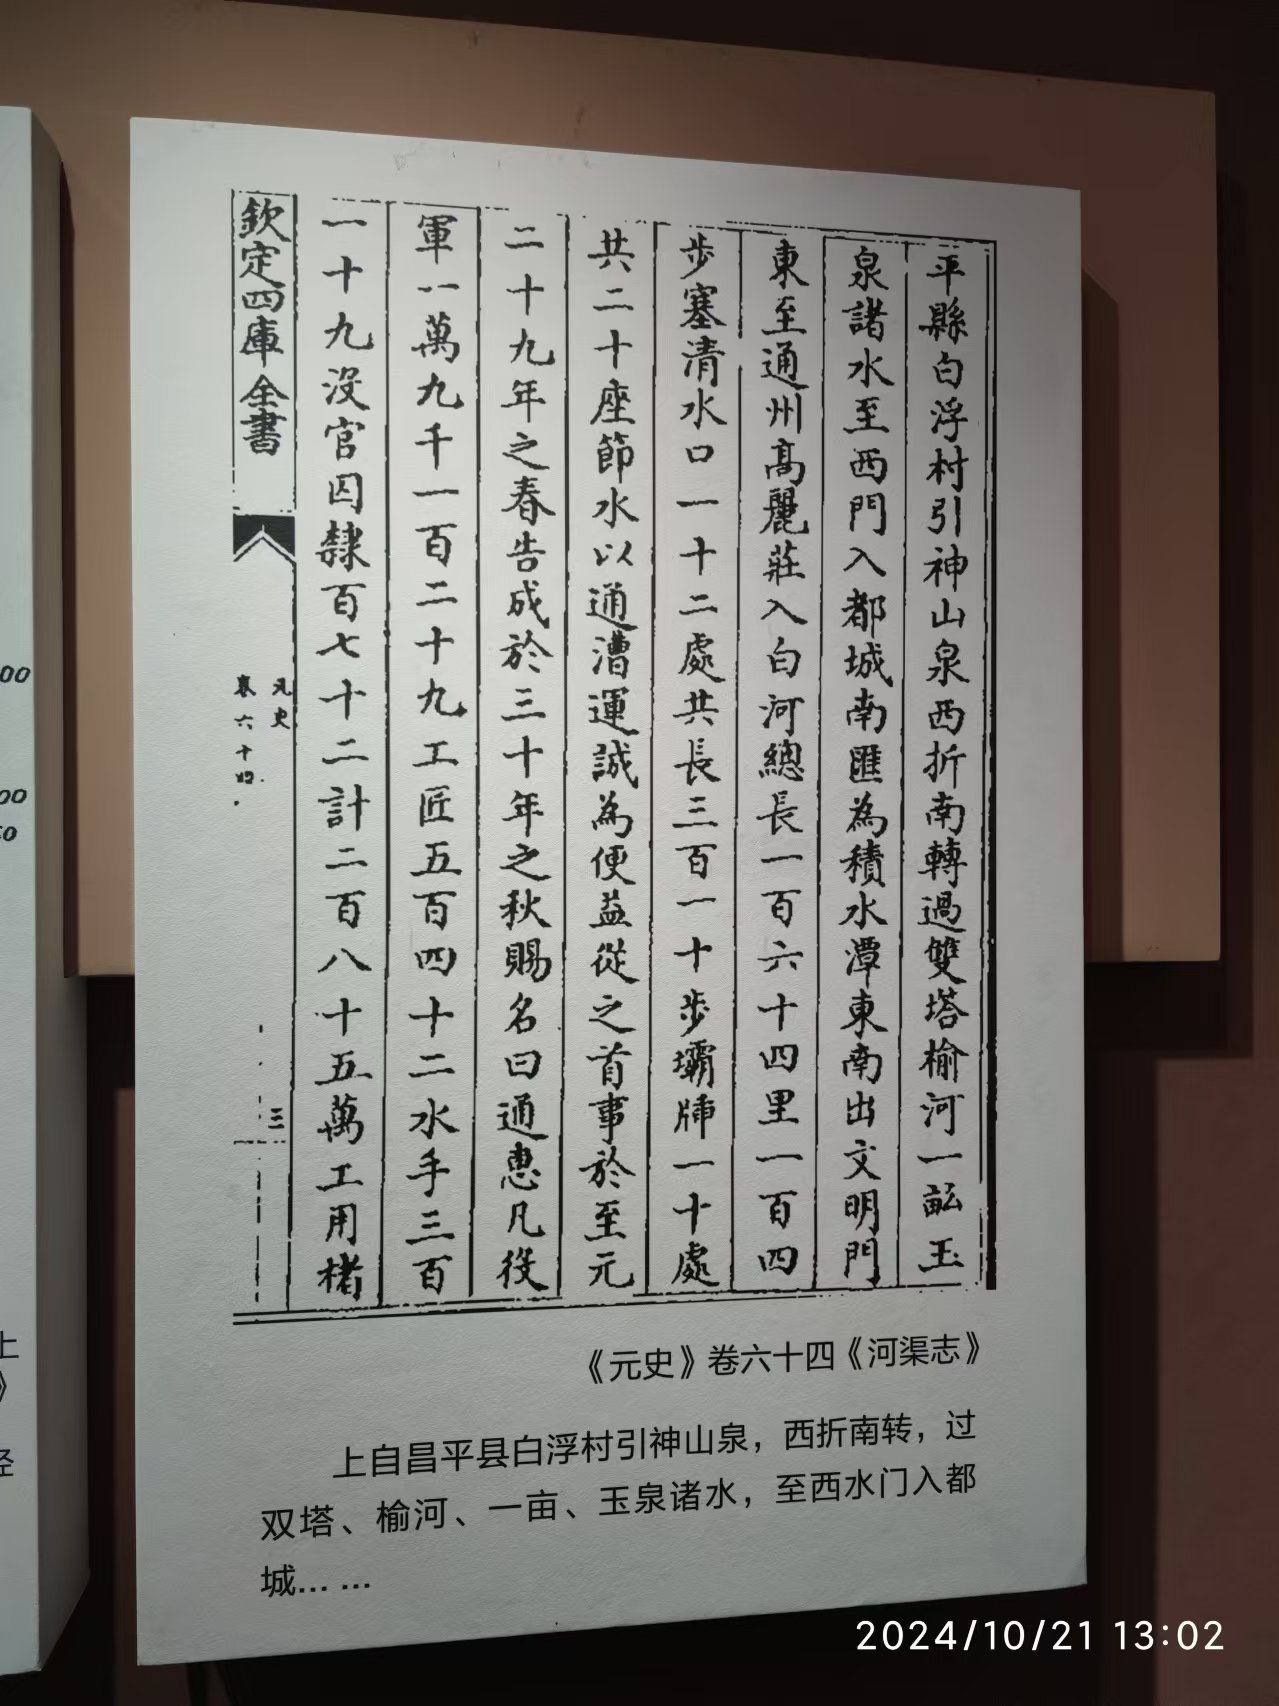 平縣白浮村引神山泉西折南轉過雙塔榆河一畝玉
泉諸水至西門入都城南匯為積水潭東南出文明門
東至通州髙麗莊入白河總長一百六十四里一百四
步塞清水口一十二處共長三百一十步壩牐一十處
共二十座節水以通漕運誠為便益從之首事於至元
二十九年之春告成於三十年之秋賜名曰通惠凡役
軍一萬九千一百二十九工匠五百四十二水手三百
一十九沒官囚隸百七十二計二百八十五萬工用楮
欽定四庫全書
元史
卷六十四
三
《元史》卷六十四《河渠志》
上自昌平县白浮村引神山泉，西折南转，过
双塔、榆河、一亩、玉泉诸水，至西水门入都
城... ...
00
00
上
》
2024/10/21 13:02